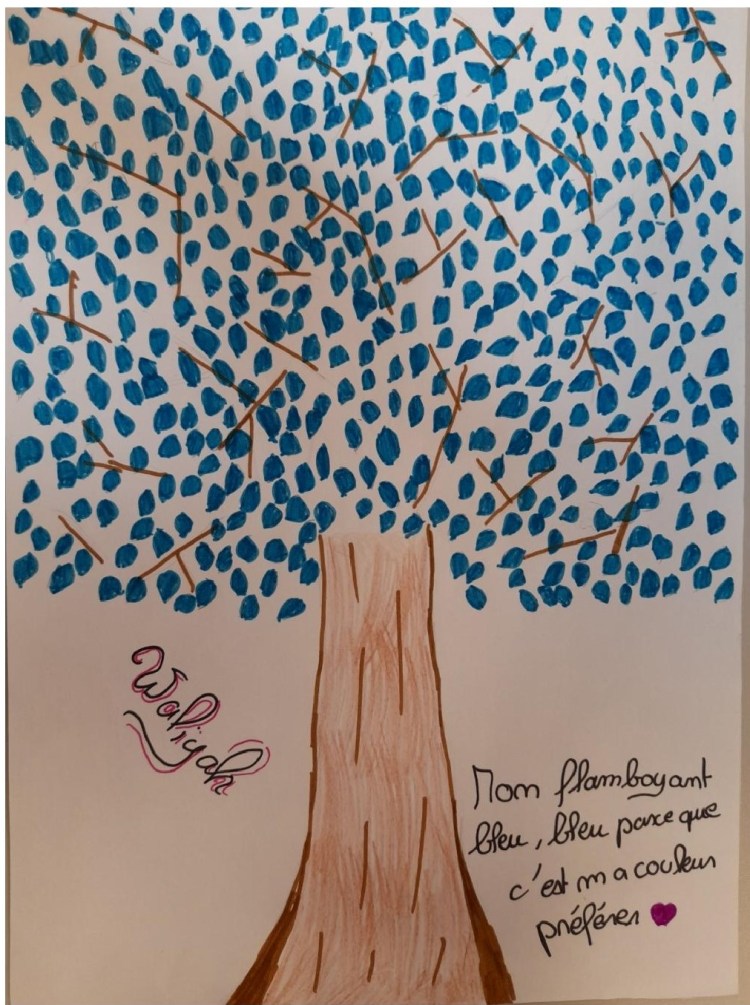 Waliyah
Mon flamboyant
bleu, bleu parce que
c'est ma couleur
préférer